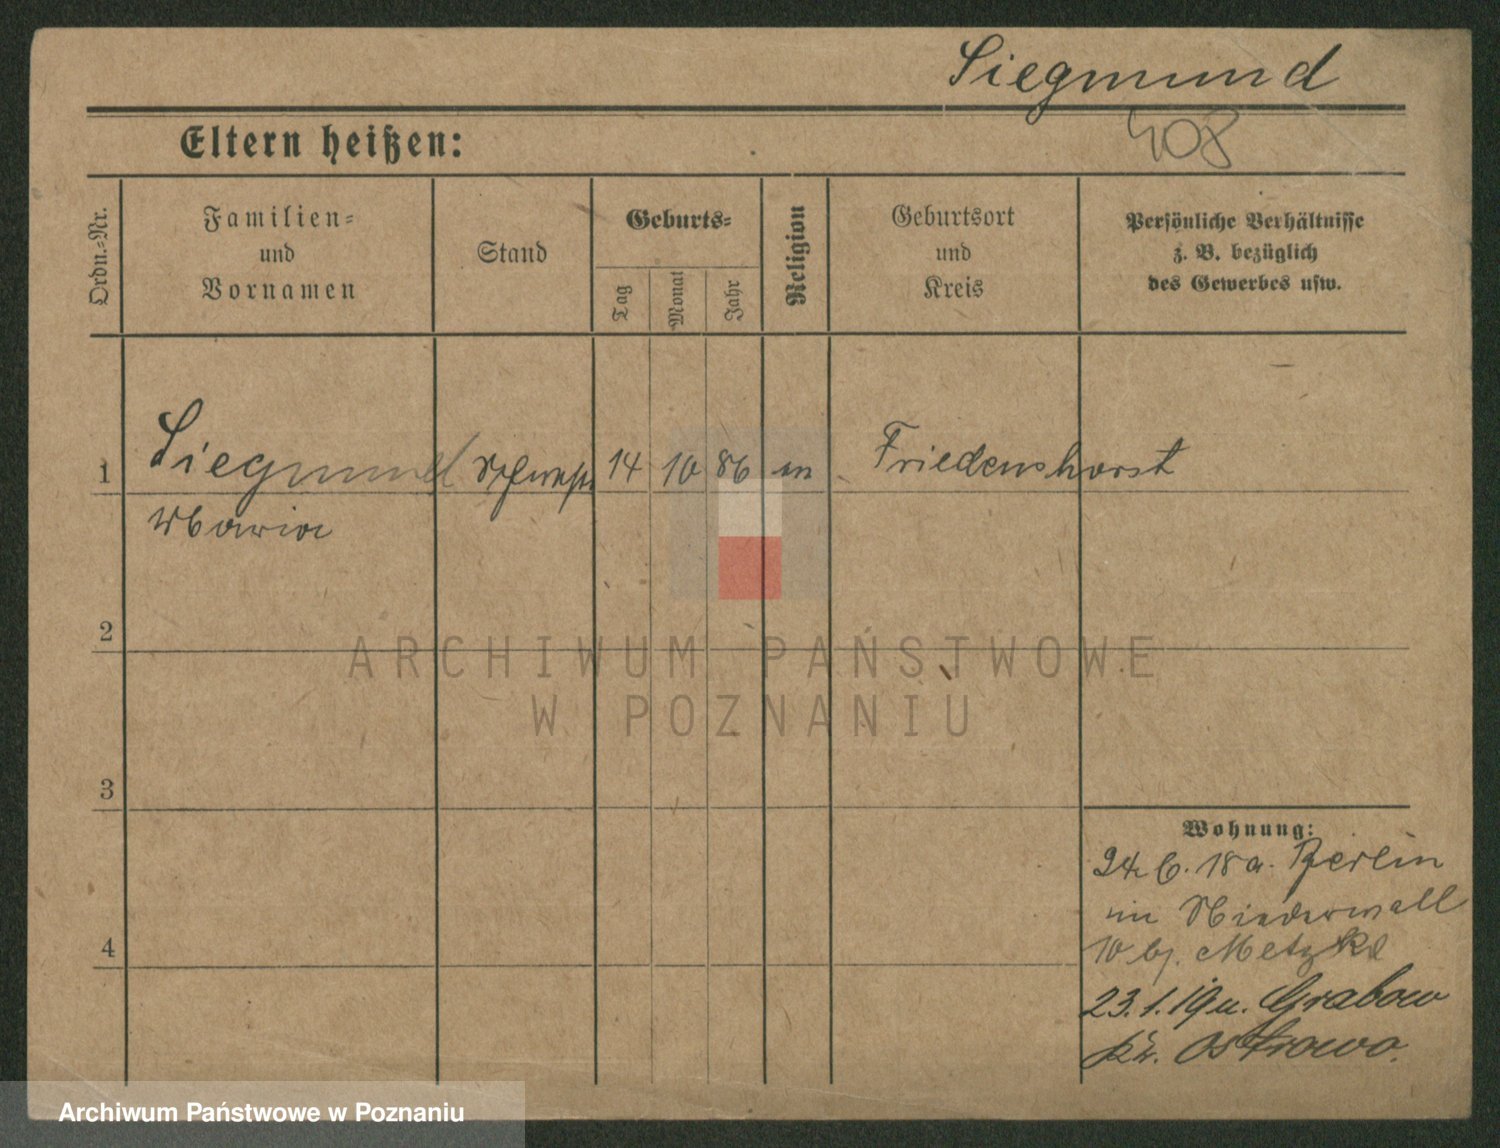 Siegmund
408
Eltern heißen:
Ordn.-Nr.
Familien- und Vornamen
Stand
Geburts-
Tag
Monat
Jahr
Religion
Geburtsort und Kreis
Persönliche Verhältnisse
z. B. bezüglich
des Gewerbes usw.
1 Siegmund 14 10 86 Friedenshorst
Maria
2
3
4
Wohnung:
24. 6. 18 a. Berlin
Niederwall
10 bj. Metzke
23.1.19 n. Grabow
Kr. Ostrowo.
ARCHIWUM PAŃSTWOWE
W POZNANIU
Archiwum Państwowe w Poznaniu